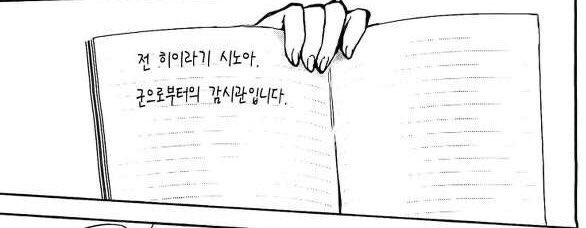 전 히이라기 시노아.
군으로부터의 감시관입니다.